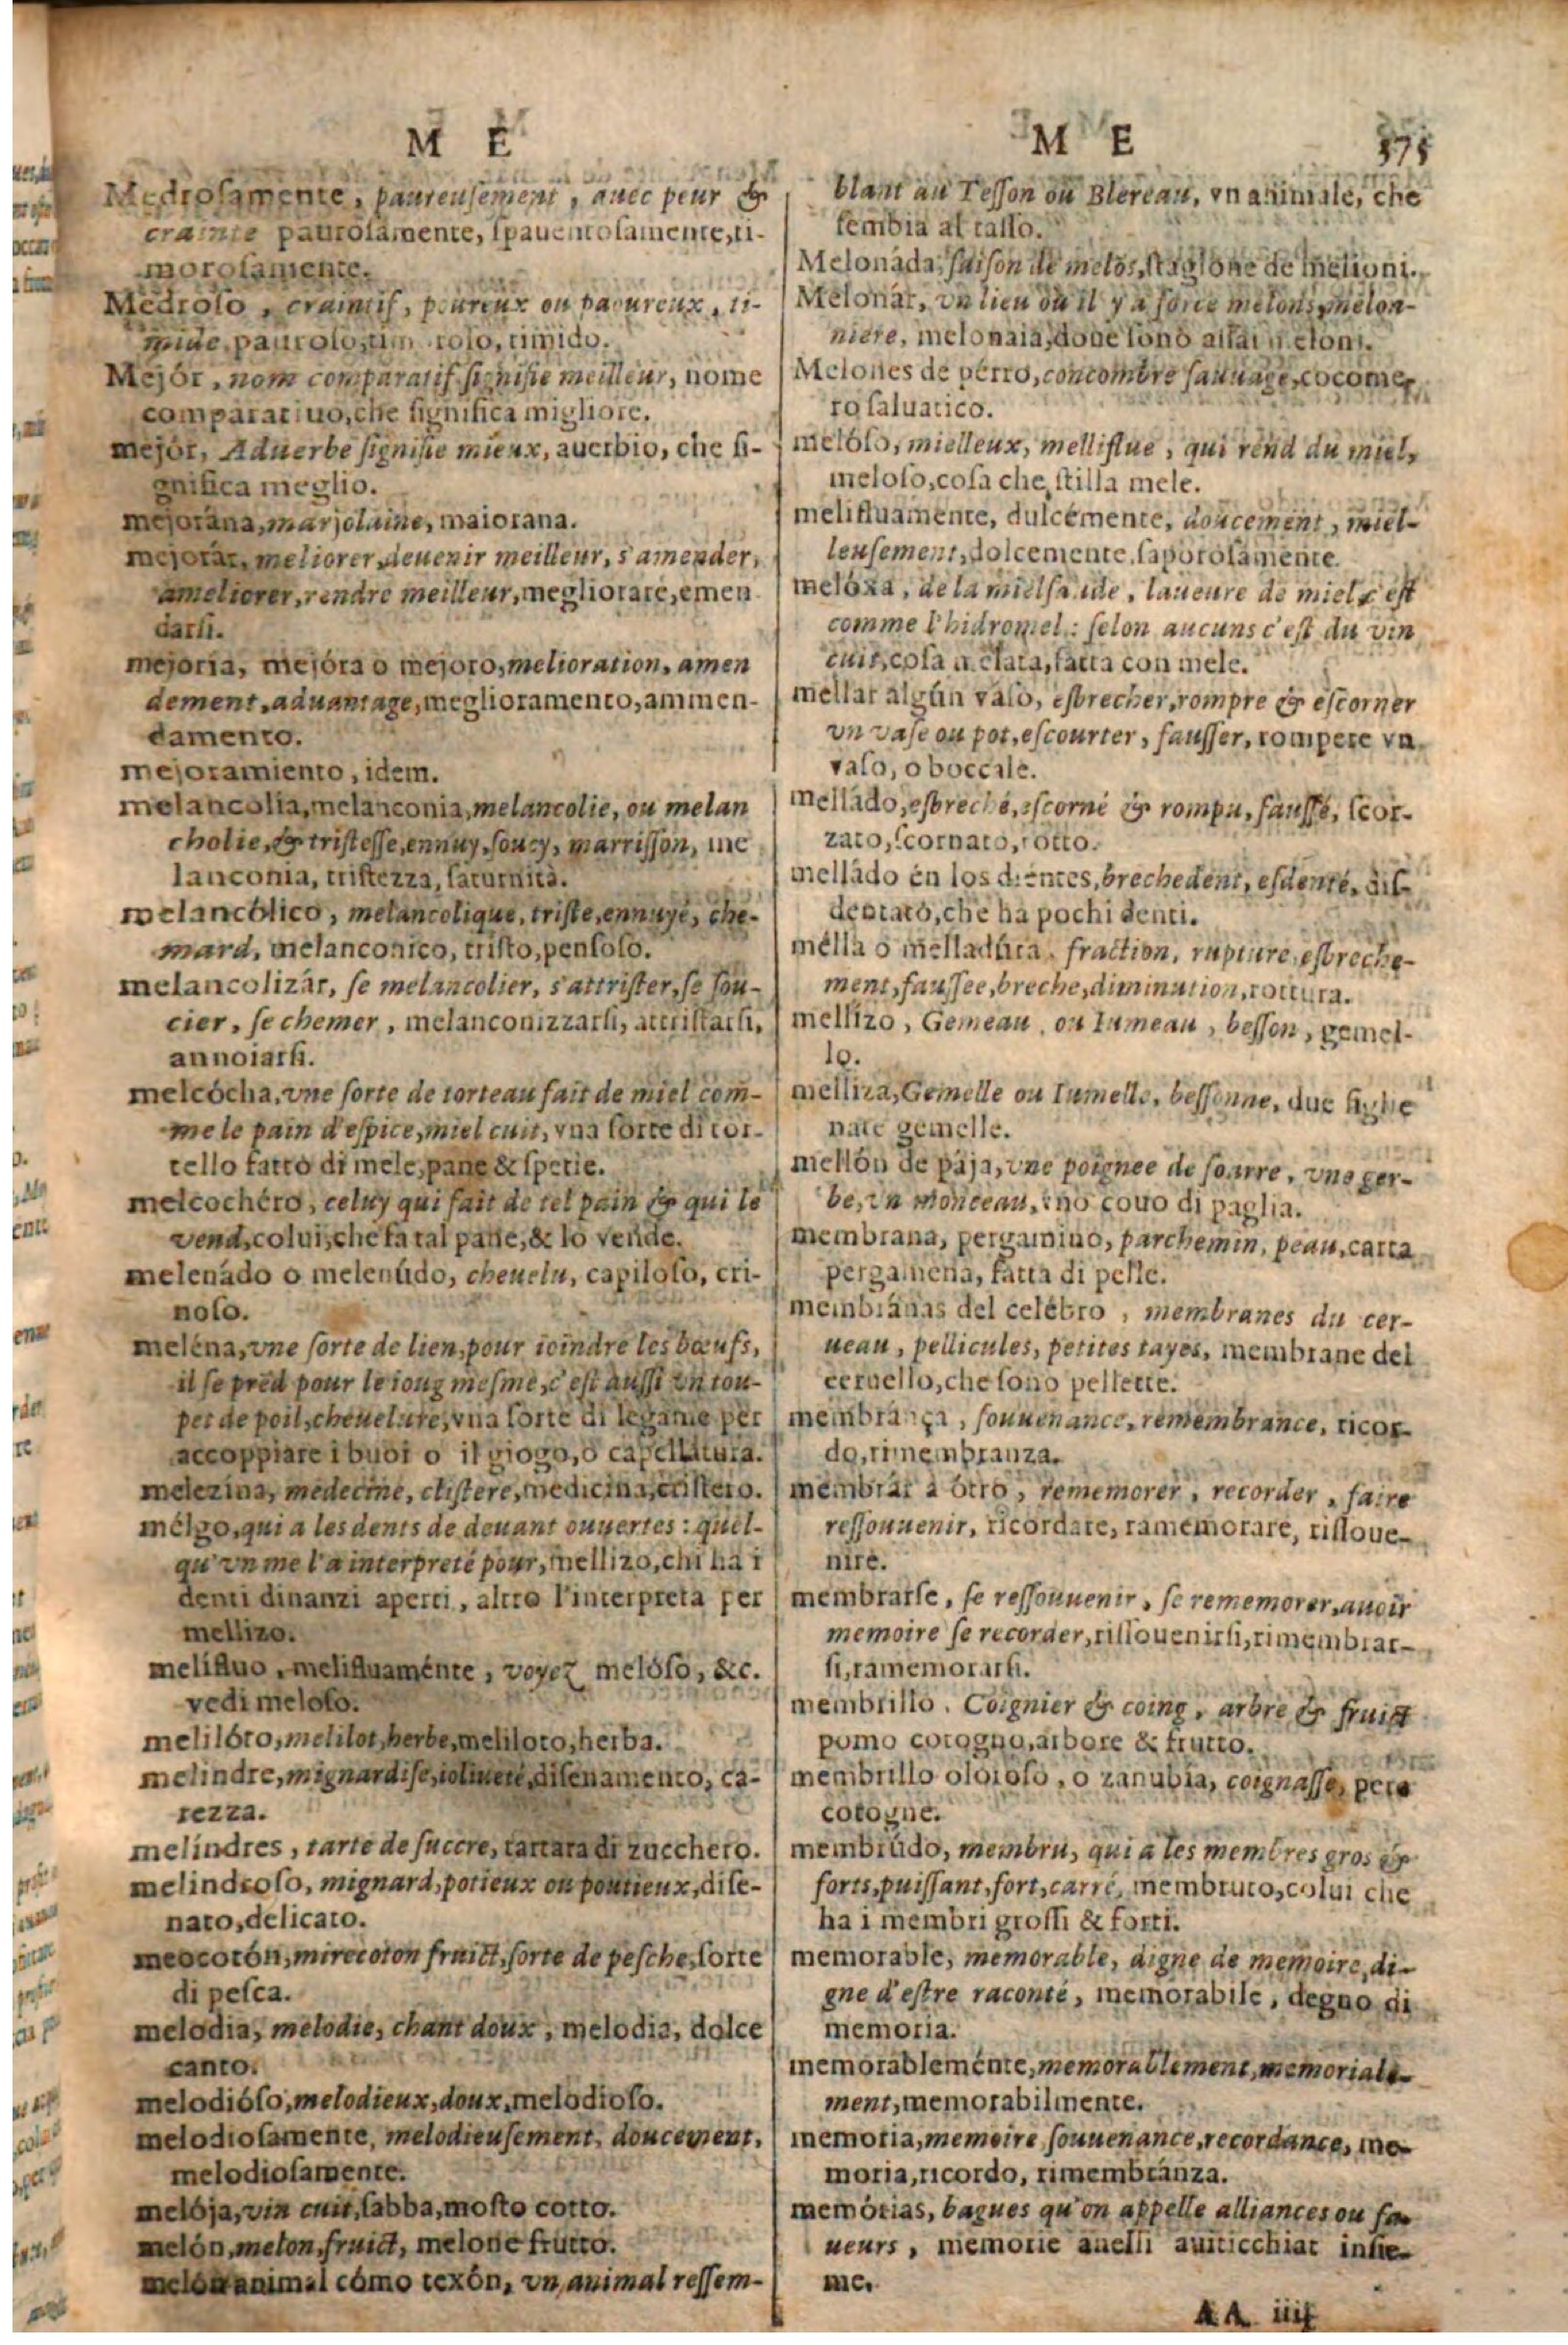 M E
Medrosamente, paureusement, auec peur &
crainte paurosamente, spauentosamente, ti-
morosamente.
Medroso, craintif, peureux ou paoureux, ti-
mide, pauroso, timoroso, timido.
Mejór, nom comparatif signifie meilleur, nome
comparatiuo, che significa migliore.
mejór, Aduerbe signifie mieux, auerbio, che si-
gnifica meglio.
mejorána, marjolaine, maiorana.
mejorár, meliorer, deuenir meilleur, s'amender,
ameliorer, rendre meilleur, megliorare, emen
darsi.
mejoria, mejóra o mejoro, melioration, amen
dement, aduantage, meglioramento, ammen-
damento.
mejoramiento, idem.
melancolia, melanconia, melancolie, ou melan
cholie, & tristesse, ennuy, soucy, marrisson, me
lanconia, tristezza, saturnità.
melancólico, melancolique, triste, ennuyé, che-
mard, melanconico, tristo, pensoso.
melancolizár, se melancolier, s'attrister, se sou-
cier, se chemer, melanconizzarsi, attristarsi,
annoiarsi.
melcócha, vne sorte de torteau fait de miel com-
me le pain d'espice, miel cuit, vna sorte di tor-
tello fatto di mele, pane & spetie.
melcochéro, celuy qui fait de tel pain & qui le
vend, colui, che fa tal pane, & lo vende.
melenádo o melenúdo, cheuelu, capiloso, cri-
noso.
meléna, vne sorte de lien, pour ioindre les bœufs,
il se prēd pour le ioug mesme, c'est aussi vn tou-
pet de poil, cheuelure, vna sorte di legame per
accoppiare i buoi o il giogo, o capellatura.
melezina, medecine, clistere, medicina, cristero.
mélgo, qui a les dents de deuant ouuertes: quel-
qu'vn me l'a interpreté pour, mellizo, chi ha i
denti dinanzi aperti, altro l'interpreta per
mellizo.
melifluo, melifluaménte, voyez melóso, &c.
vedi meloso.
melilóto, melilot, herbe, meliloto, herba.
melindre, mignardise, ioliueté, disenamento, ca-
rezza.
melíndres, tarte de succre, tartara di zucchero.
melindroso, mignard, potieux ou poutieux, dise-
nato, delicato.
meocotón, mirecoton fruict, sorte de pesche, sorte
di pesca.
melodia, melodie, chant doux, melodia, dolce
canto.
melodióso, melodieux, doux, melodioso.
melodiosamente, melodieusement, doucement,
melodiosamente.
melója, vin cuit, sabba, mosto cotto.
melón, melon, fruict, melone frutto.
melón animal cómo texón, vn animal ressem-
M E 375
blant au Tesson ou Blereau, vn animale, che
sembia al tasso.
Melonáda, saison de melōs, stagione de melloni.
Melonár, vn lieu où il y a force melons, melon-
niere, melonaia, doue sono assai meloni.
Melones de pérro, concombre sauuage, cocome
ro saluatico.
melóso, mielleux, melliflue, qui rend du miel,
meloso, cosa che stilla mele.
melifluamente, dulcémente, doucement, miel-
leusement, dolcemente, saporosamente.
melóxa, de la mielsaude, laueure de miel, c'est
comme l'hidromel: selon aucuns c'est du vin
cuit, cosa melata, fatta con mele.
mellar algún váso, esbrecher, rompre & escorner
vn vase ou pot, escourter, fausser, rompere vn
vaso, o boccale.
melládo, esbreché, escorné & rompu, faussé, scor-
zato, scornato, rotto.
melládo én los dientes, brechedent, esdenté, dis-
dentato, che ha pochi denti.
mélla o melladúra, fraction, rupture, esbreche-
ment, faussee, breche, diminution, rottura.
mellizo, Gemeau, ou Iumeau, besson, gemel-
lo.
melliza, Gemelle ou Iumelle, bessonne, due figlie
nate gemelle.
mellón de pája, vne poignee de foarre, vne ger-
be, vn monceau, vno couo di paglia.
membrana, pergamino, parchemin, peau, carta
pergamena, fatta di pelle.
membránas del celébro, membranes du cer-
ueau, pellicules, petites tayes, membrane del
ceruello, che sono pellette.
membrança, souuenance, remembrance, ricor-
do, rimembranza.
membrár a ótro, rememorer, recorder, faire
ressouuenir, ricordare, ramemorare, rissoue-
nire.
membrarse, se ressouuenir, se rememorer, auoir
memoire se recorder, rissouenirsi, rimembrar-
si, ramemorarsi.
membrillo, Coignier & coing, arbre & fruict
pomo cotogno, arbore & frutto.
membrillo oloroso, o zanubía, coignasse, pera
cotogne.
membrúdo, membru, qui a les membres gros &
forts, puissant, fort, carré, membruto, colui che
ha i membri grossi & forti.
memorable, memorable, digne de memoire, di-
gne d'estre raconté, memorabile, degno di
memoria.
memorablemente, memorablement, memoriale-
ment, memorabilmente.
memoria, memoire souuenance, recordance, me-
moria, ricordo, rimembranza.
memórias, bagues qu'on appelle alliances ou fa-
ueurs, memorie anelli auiticchiat insie-
me.
AA iiij